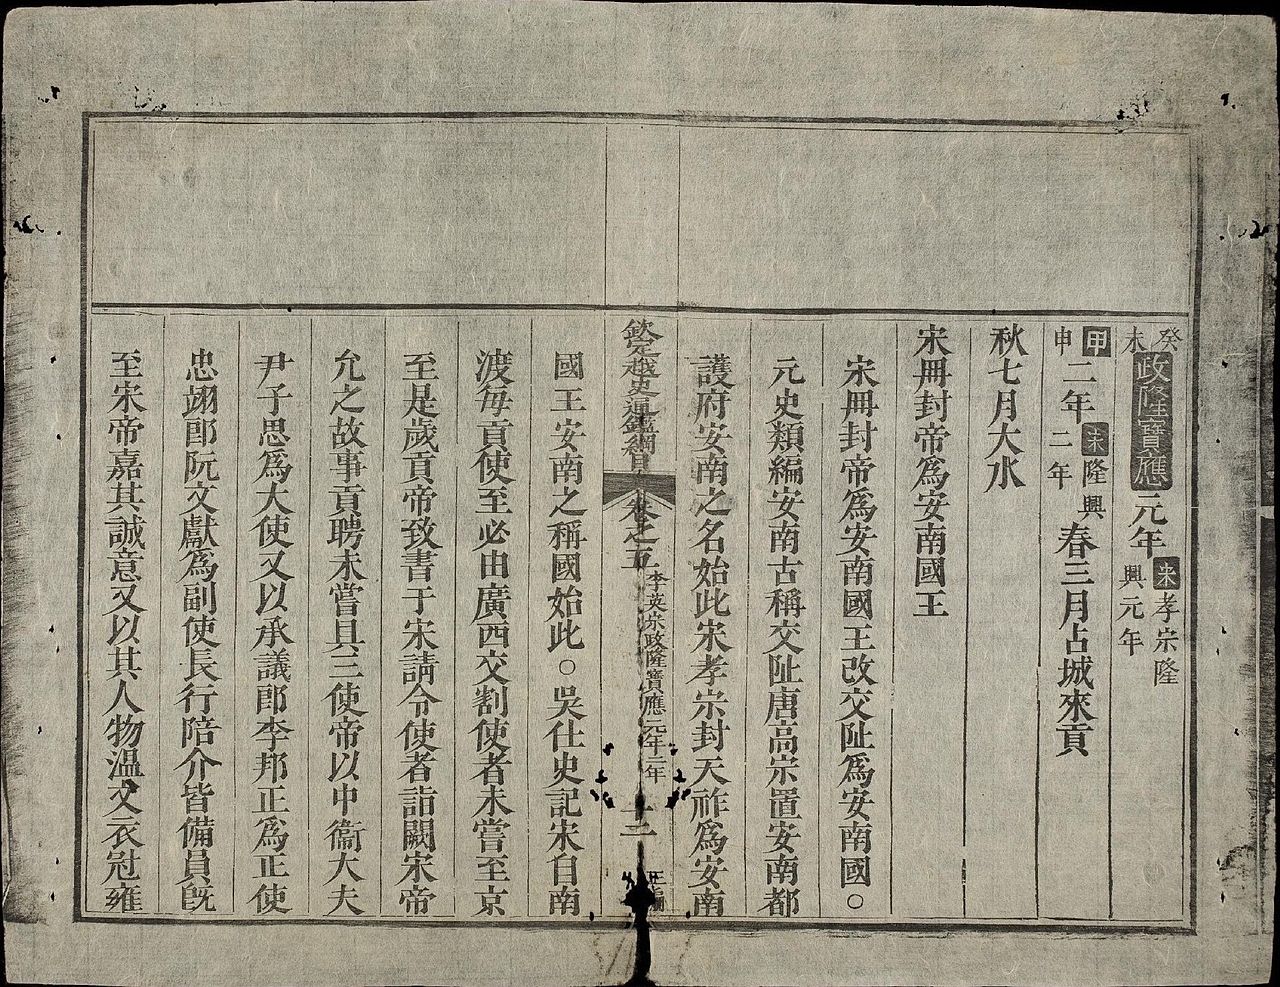 癸未政隆寶應元年宋孝宗隆興元年
甲申二年宋隆興二年春三月占城來貢
秋七月大水
宋冊封帝爲安南國王
宋冊封帝爲安南國王改交阯爲安南國○
元史類編安南古稱交阯唐高宗置安南都
護府安南之名始此宋孝宗封天祚爲安南
欽定越史通鑑綱目卷之五 李英宗政隆寶應元年二年 十二 正編
國王安南之稱國始此○吳仕史記宋自南
渡每貢使至必由廣西交割使者未嘗至京
至是歲貢帝致書于宋請令使者詣闕宋帝
允之故事貢聘未嘗具三使帝以中衞大夫
尹子思爲大使又以承議郎李邦正爲正使
忠翊郎阮文獻爲副使長行陪介皆備員旣
至宋帝嘉其誠意又以其人物溫文衣冠雍